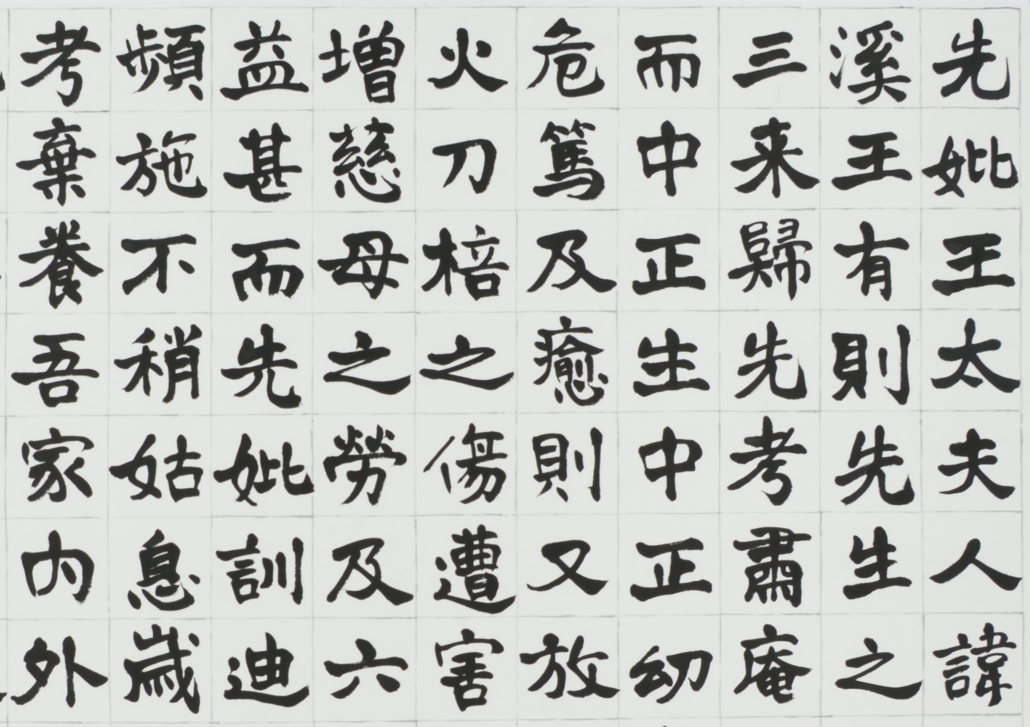 先妣王太夫人諱
溪王有則先生之
三来歸先考肅庵
而中正生中正幼
危篤及癒則又放
火刀棓之傷遭害
增慈母之勞及六
益甚而先妣訓迪
頻施不稍姑息歲
考棄養吾家內外